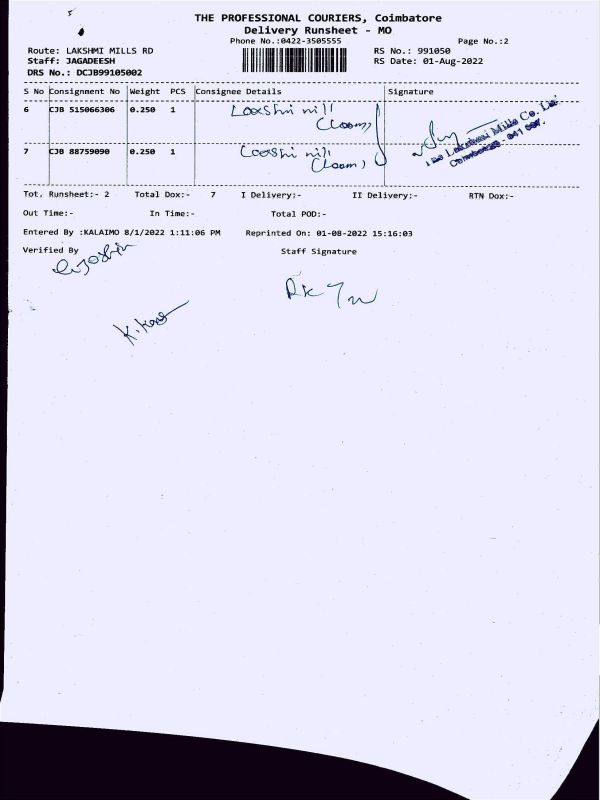 THE PROFESSIONAL COURIERS, Coimbatore
Delivery Runsheet - MO
Phone No.:0422-3505555
Page No.:2
Route: LAKSHMI MILLS RD
RS No.: 991050
Staff: JAGADEESH
RS Date: 01-Aug-2022
DRS No.: DCJB99105002
S No Consignment No Weight PCS Consignee Details Signature
6 CJB 515066306 0.250 1
(Loom)
7 CJB 88759090 0.250 1
(Loom)
The Lakshmi Mills Co. Ltd
Coimbatore - 641 037.
Tot. Runsheet:- 2 Total Dox:- 7 I Delivery:- II Delivery:- RTN Dox:-
Out Time:- In Time:- Total POD:-
Entered By :KALAIMO 8/1/2022 1:11:06 PM Reprinted On: 01-08-2022 15:16:03
Verified By Staff Signature